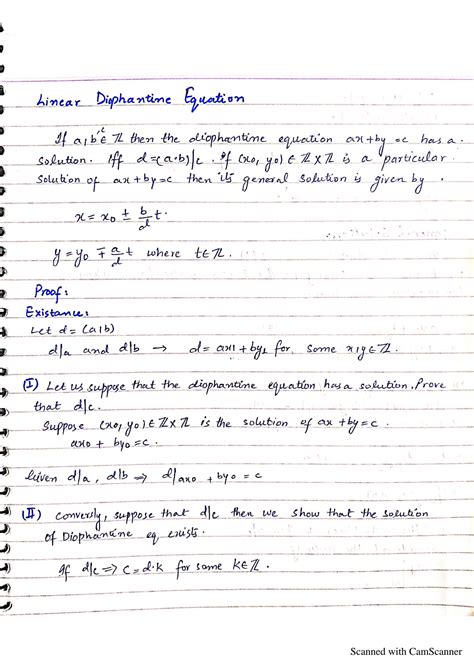 Linear Diophantine Equation
If a,b,c ∈ ℤ then the diophantine equation ax+by =c has a
solution. Iff d=(a,b)|c. If (x₀, y₀) ∈ ℤ×ℤ is a particular
solution of ax+by=c then its general solution is given by
x = x₀ ± b/d t.
y = y₀ ∓ a/d t where t∈ℤ.
Proof:
Existance:
Let d = (a,b)
d|a and d|b → d = ax₁+by₁ for some x,y∈ℤ.
(I) Let us suppose that the diophantine equation has a solution. Prove
that d|c.
Suppose (x₀, y₀) ∈ ℤ×ℤ is the solution of ax +by=c.
ax₀ + by₀ = c.
Given d|a, d|b ⇒ d|ax₀ + by₀ = c
(II) Conversly, suppose that d|c then we show that the solution
of Diophantine eq. exists.
If d|c ⇒ c = d·k for some k∈ℤ.
Scanned with CamScanner